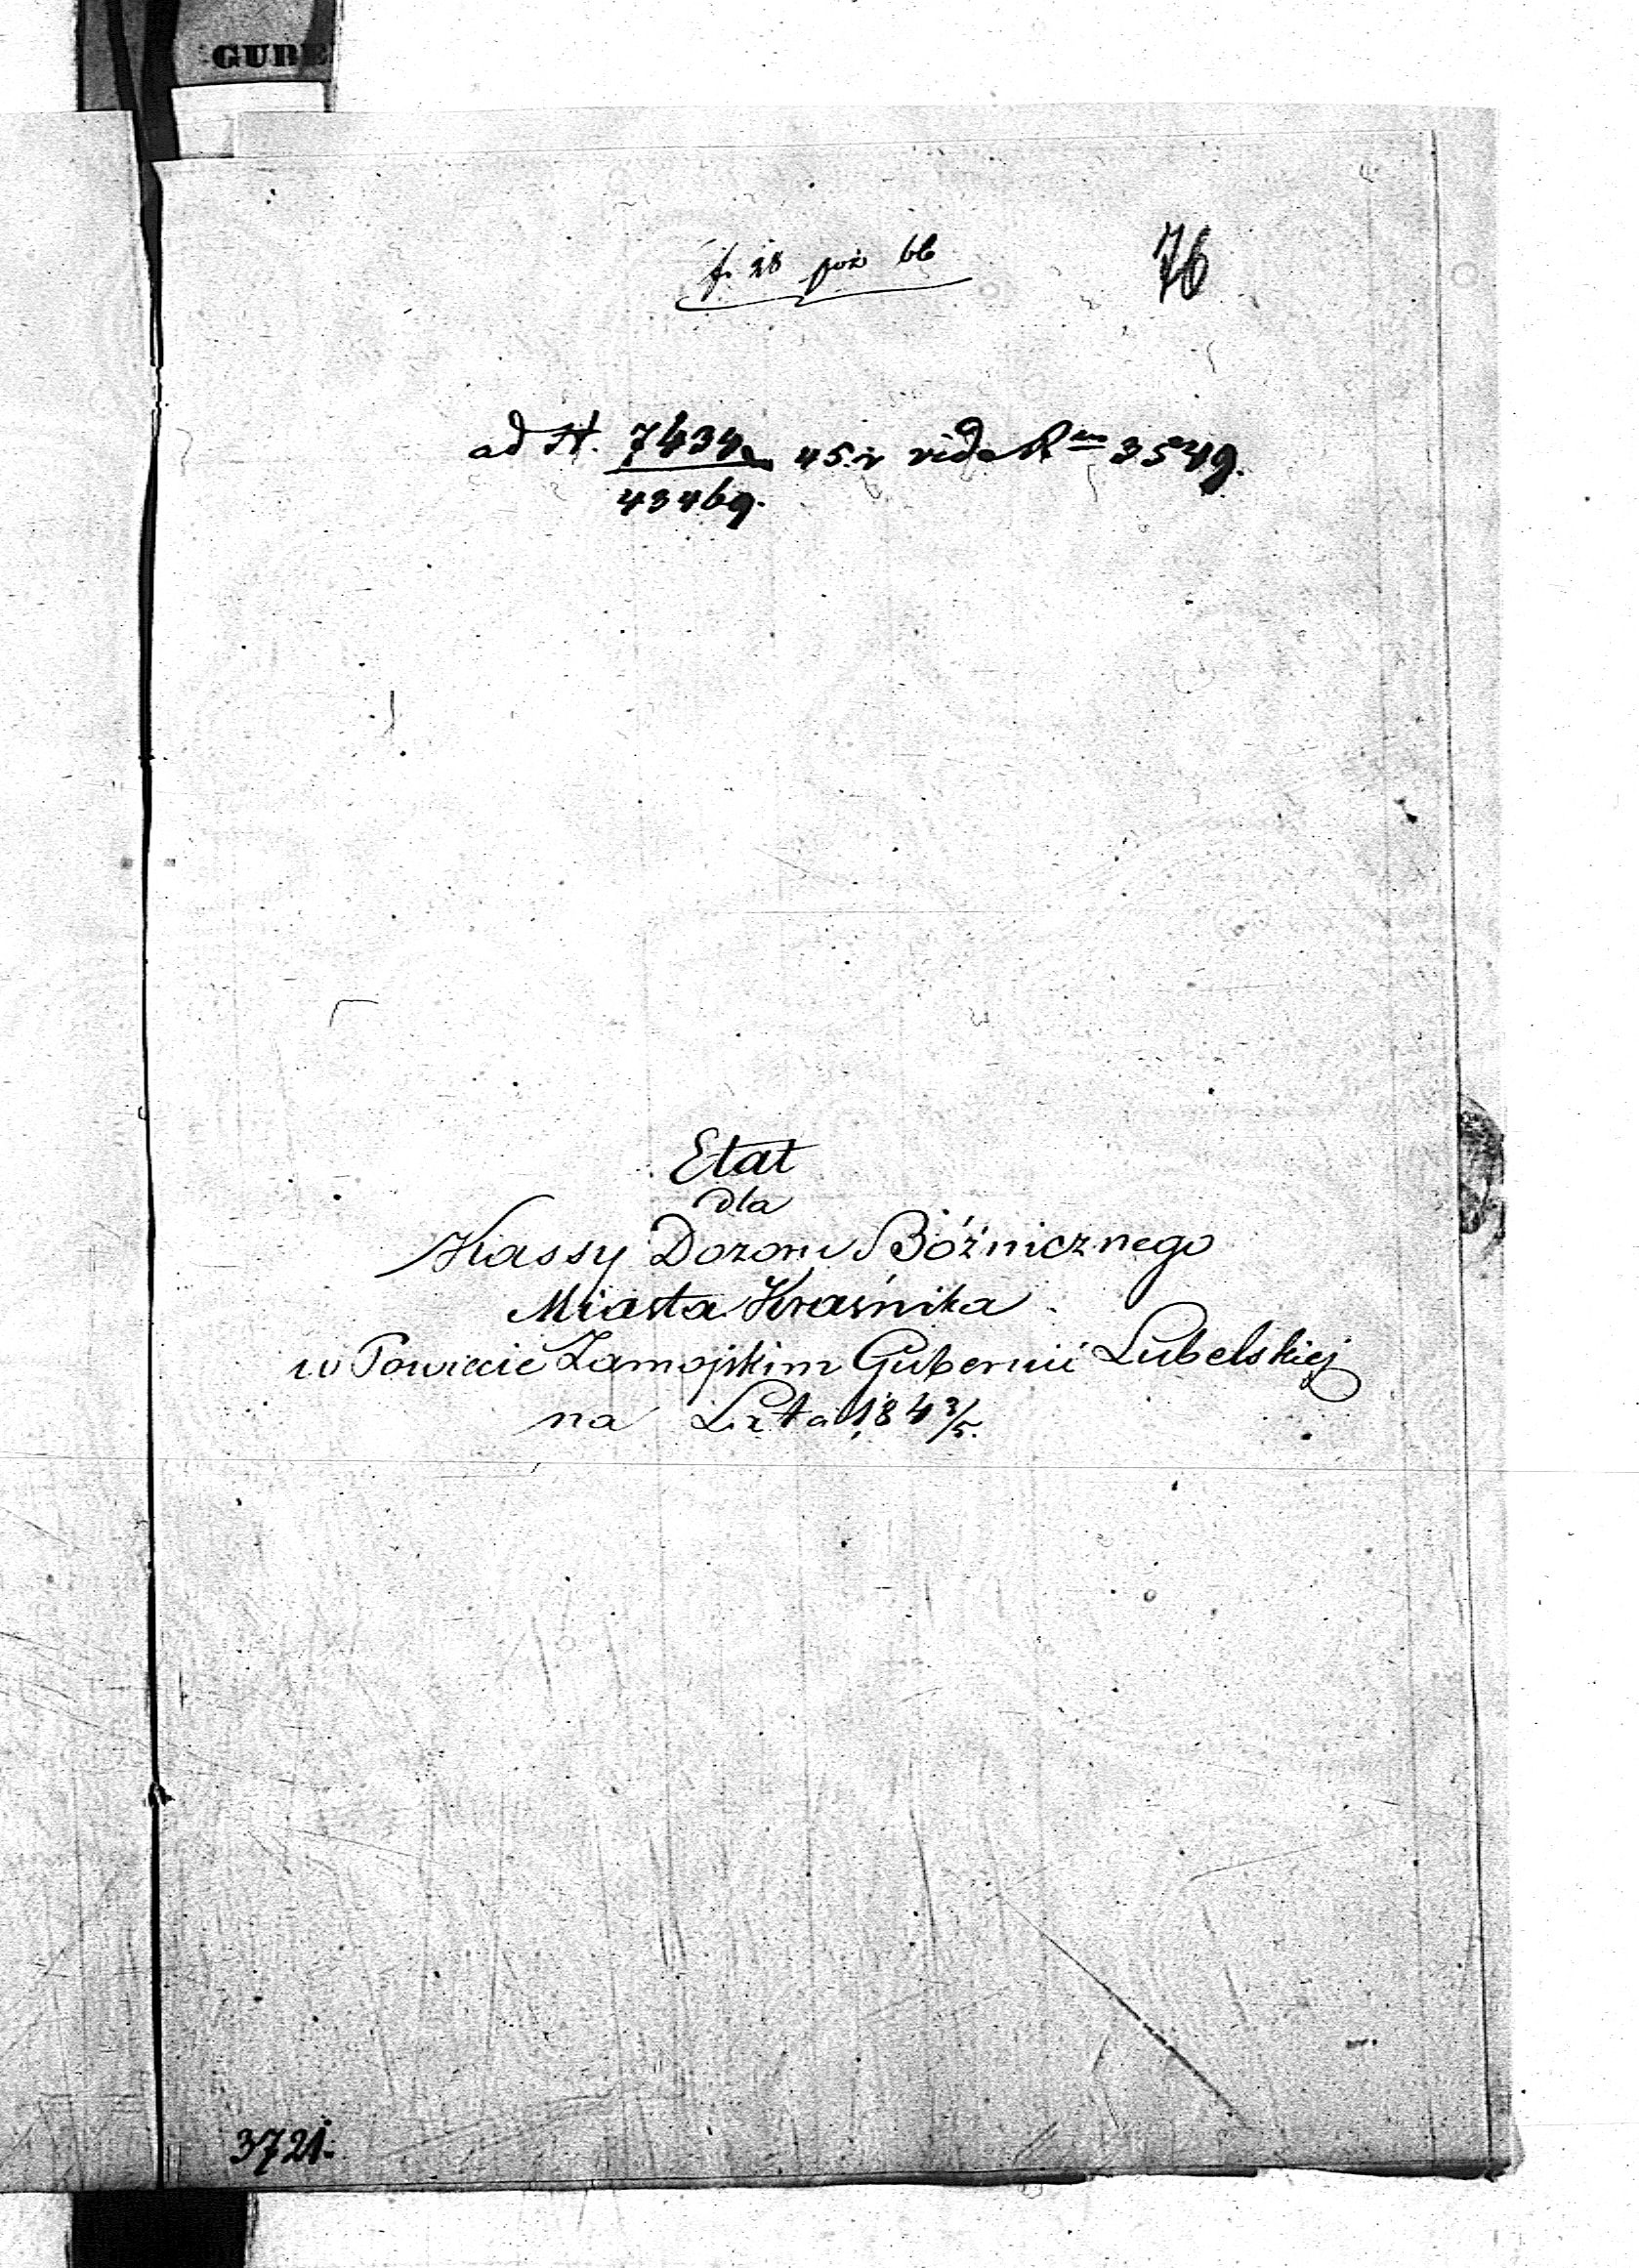 GUBE
f. 28 poz 66
76
ad N. 7434
43469.
45 r vide 3549.
Etat
dla
Kassy Dozoru Bóźnicznego
Miasta Kraśnika
w Powiecie Zamojskim Gubernii Lubelskiej
na Lata 184 3/5.
3721.